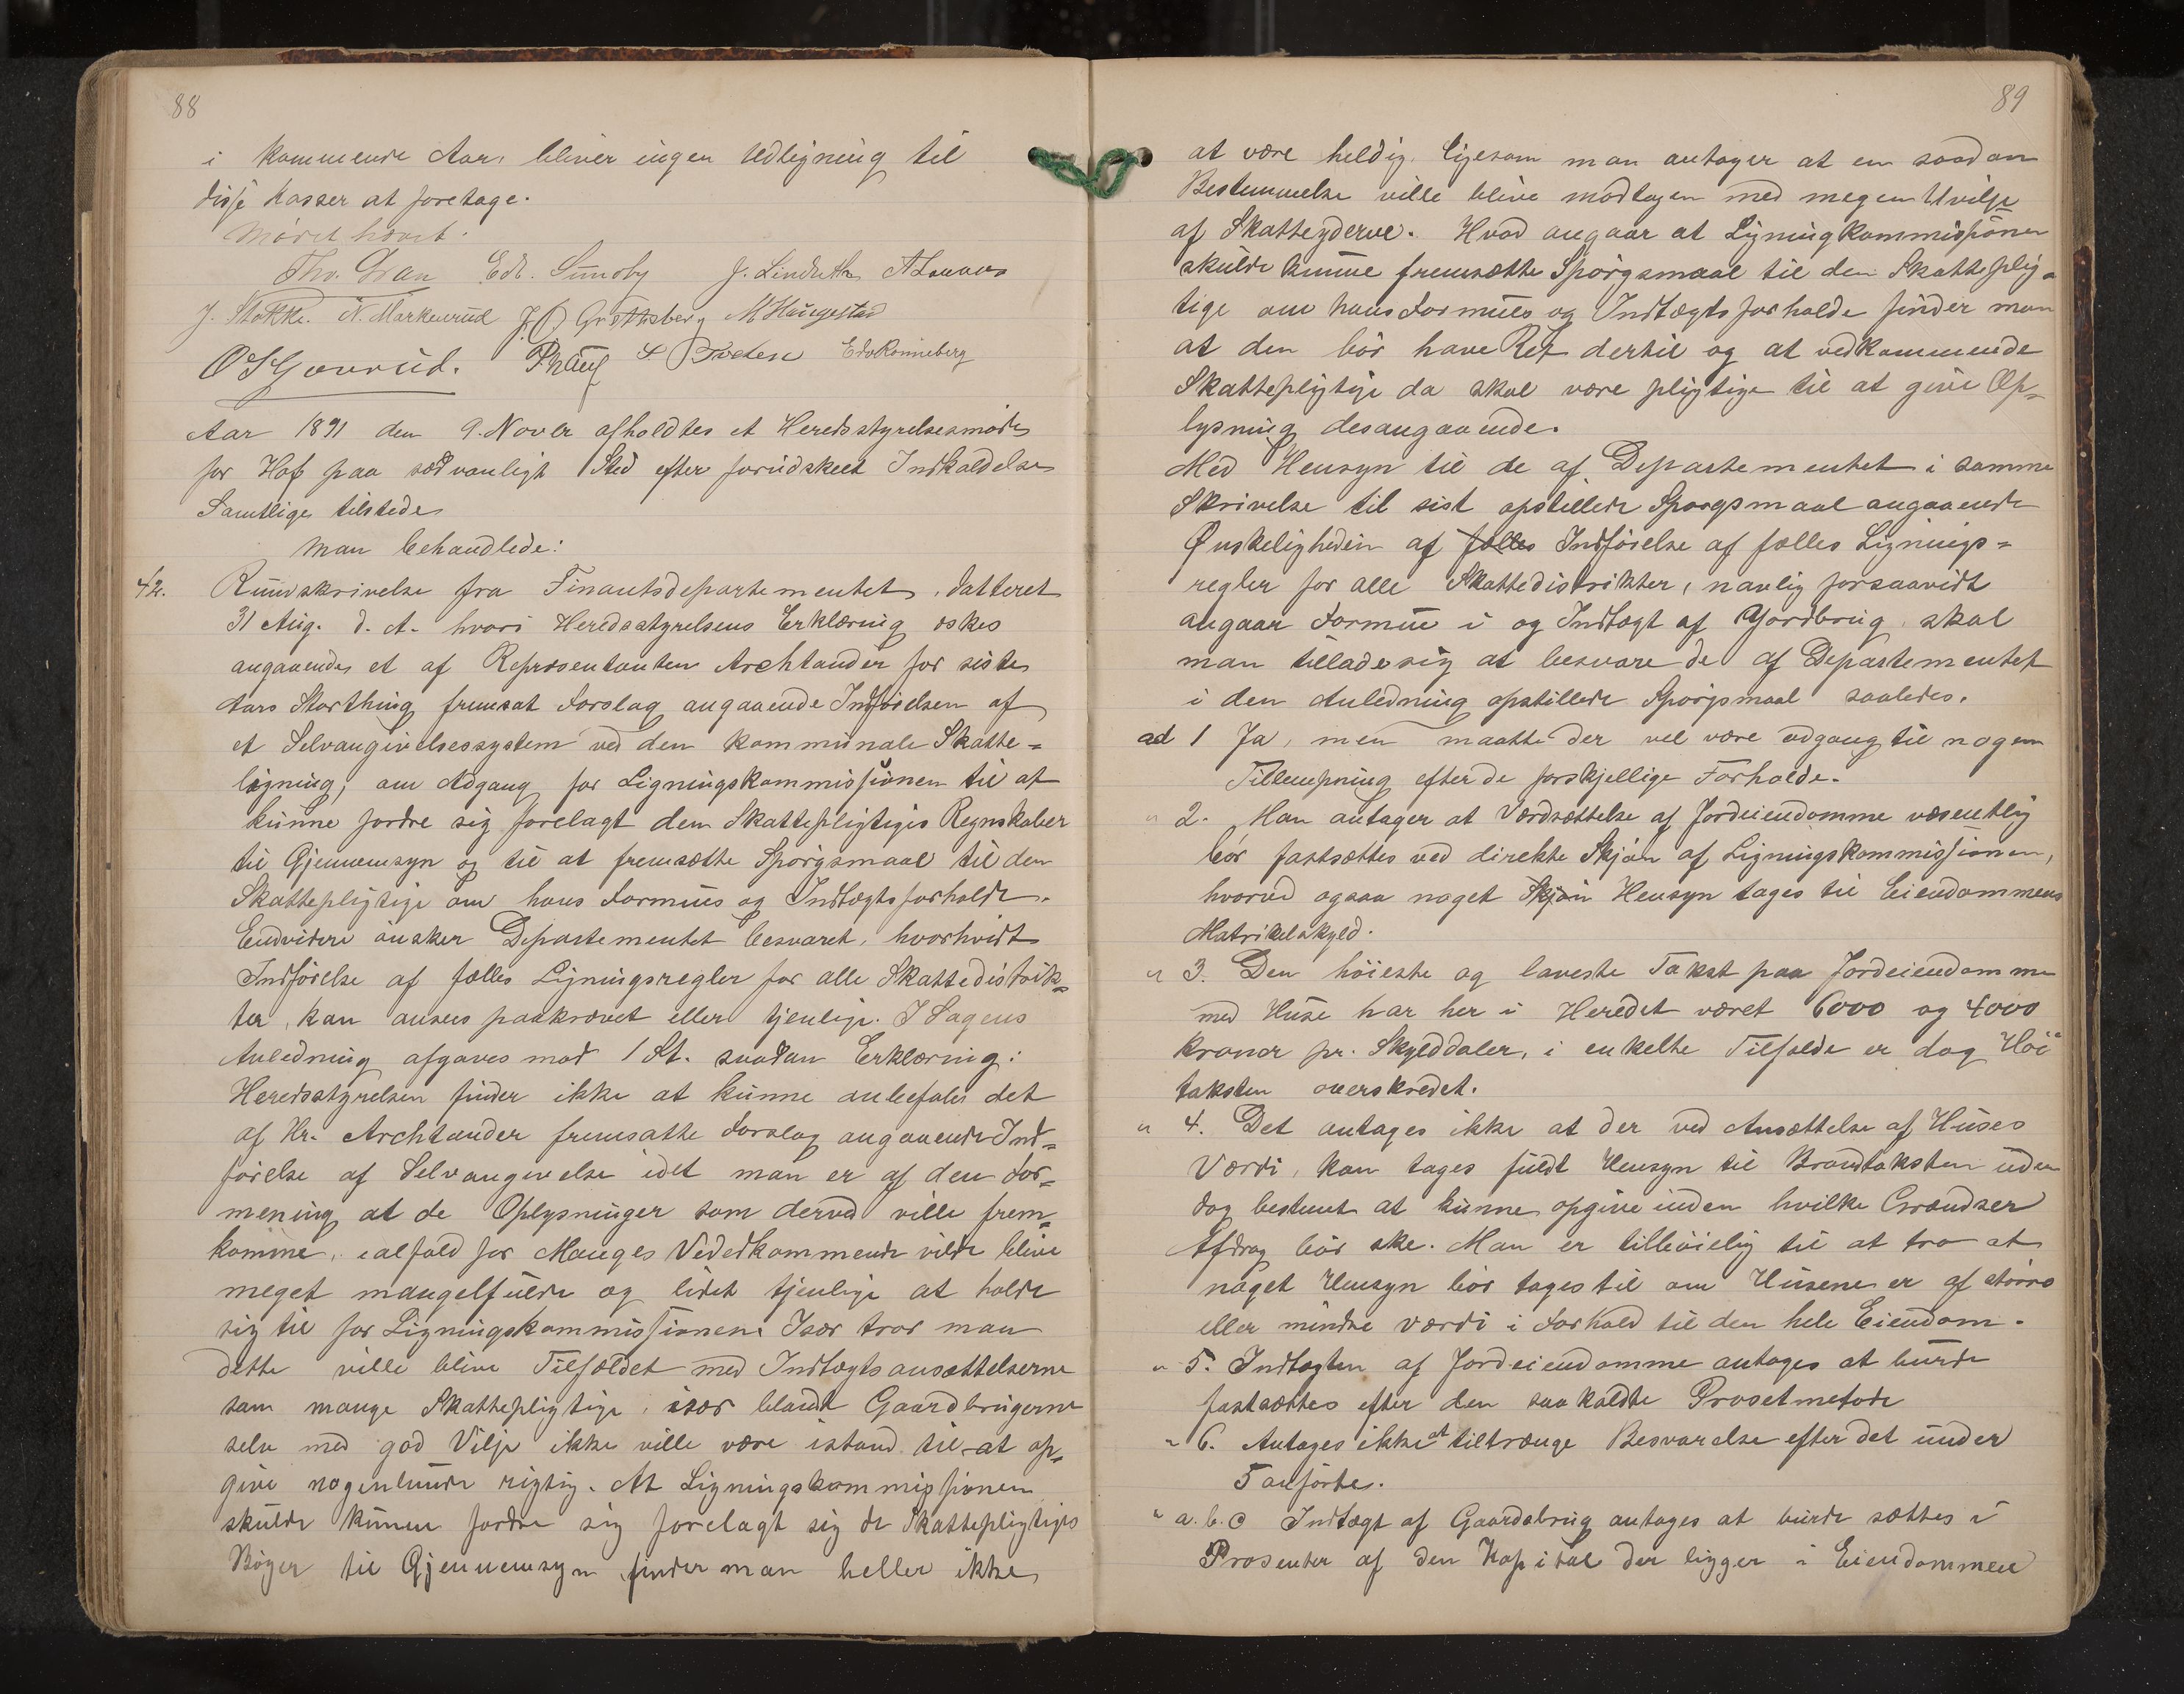 88
i kommende Aar bliver ingen Udligning til
disse Kasser at foretage.
Mødet hævet.
Thv. Gran Edv. Sundby J. Lindseth
J. Stokke. N. Markerud J. O. Grøthsberg M Haugestad
O S Gjerverud. P Haug S. Tveten Edv Ronneberg
Aar 1891 den 9. Novbr afholdtes et Heredsstyrelsesmøde
for Hof paa sædvanligt Sted efter forudskeet Indkaldelse
Samtlige tilstede
Man behandlede:
42. Rundskrivelse fra Finantsdepartementet, datteret
31 Aug. d. A. hvori Heredsstyrelsens Erklæring øskes
angaaende et af Repræsentanten Archtander for siste
Aars Storthing fremsat Forslag angaaende Indførelsen af
et Selvangivelsessystem ved den kommunale Skatte=
ligning; om Adgang for Ligningskommissionen til at
kunne fordre sig forelagt den Skattepligtiges Regnskaber
til Gjennemsyn og til at fremsætte Spørgsmaal til den
Skattepligtige om hans Formues og Indtægtsforholde.
Endvidere ønsker Departementet besvaret, hvorhvidt
Indførelse af fælles Ligningsregler for alle Skattedistrik=
ter, kan ansees paakrævet eller tjenlige. I Sagens
Anledning afgaves mod 1 St. saadan Erklæring:
Heredsstyrelsen finder ikke at kunne anbefale det
af Hr. Archtander fremsatte Forslag angaaende Ind=
førelse af Selvangivelse idet man er af den For=
mening at de Oplysninger som derved ville frem=
komme, ialfald for Manges Vedkommende vilde blive
meget mangelfulde og lidet tjenlige at holde
sig til for Ligningskommissionen. Især tror man
dette ville blive Tilfældet med Indtægtsansættelserne
som mange Skattepligtige, især blandt Gaardbrugerne
selv med god Vilje ikke ville være istand til at op=
give nogenlunde rigtig. At Ligningskommissionen
skulde kunne fordre sig forelagt sig de Skattepligtiges
Bøger til Gjennemsyn finder man heller ikke
89
at være heldig ligesom man antager at en saadan
Bestemmelse ville blive modtagen med megen Uvilje
af Skatteyderne. Hvad angaar at Ligningkommissionen
skulde kunne fremsætte Spørgsmaal til den Skatteplig=
tige om hans Formues og Indtægtsforholde finder man
at den bør have Ret dertil og at vedkommende
Skattepligtige da skal være pligtige til at give Op=
lysning desangaaende.
Med Hensyn til de af Departementet i samme
Skrivelse til sist opstillede Spørgsmaal angaaende
Ønskeligheden af fælles Indførelse af fælles Lignings=
regler for alle Skattedistrikter, navlig forsaavidt
angaar Formue i og Indtægt af Jordbrug skal
man tillade sig at besvare de af Departementet
i den Anledning opstillede Spørgsmaal saaledes.
ad 1 Ja, men maatte der vel være adgang til nogen
Tillempning efter de forskjellige Forholde.
" 2. Man antager at Værdsættelse af Jordeiendomme væsentlig
bør fastsættes ved direkte Skjøn af Ligningskommissionen,
hvorved ogsaa noget Skjøn Hensyn tages til Eiendommens
Matrikelskyld.
" 3. Den høieste og laveste Takst paa Jordeiendomme
med Huse har her i Heredet været 6000 og 4000
kroner pr. Skylddaler, i enkelte Tilfælde er dog Høi=
taksten overskredet.
" 4. Det antages ikke at der ved Ansættelse af Huses
Værdi, kan tages fuldt Hensyn til Brandtaksten uden
dog bestemt at kunne opgive inden hvilke Grændser
Afdrag bør ske. Man er tilbøielig til at tro at
noget Hensyn bør tages til om Husene er af større
eller mindre Værdi i Forhold til den hele Eiendom.
" 5. Indtægten af Jordeiendomme antages at burde
fastsættes efter den saakaldte Prosetmetode
" 6. Antages ikke at tiltrænge Besvarelse efter det under
5 anførte.
" a. b. c Indtægt af Gaardsbrug antages at burde sættes i
Prosenter af den Kapital der ligger i Eiendommen